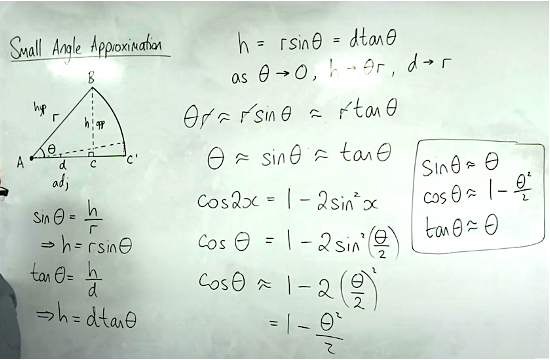 Small Angle Approximation
B
hyp
r
h
opp
θ
A
d
C
C'
adj
sinθ = h/r
⇒ h = rsinθ
tanθ = h/d
⇒ h = dtanθ
h = rsinθ = dtanθ
as θ → 0, h → θr, d → r
θr ≈ rsinθ ≈ rtanθ
θ ≈ sinθ ≈ tanθ
cos2x = 1 - 2sin²x
cosθ = 1 - 2sin²(θ/2)
cosθ ≈ 1 - 2(θ/2)²
= 1 - θ²/2
sinθ ≈ θ
cosθ ≈ 1 - θ²/2
tanθ ≈ θ